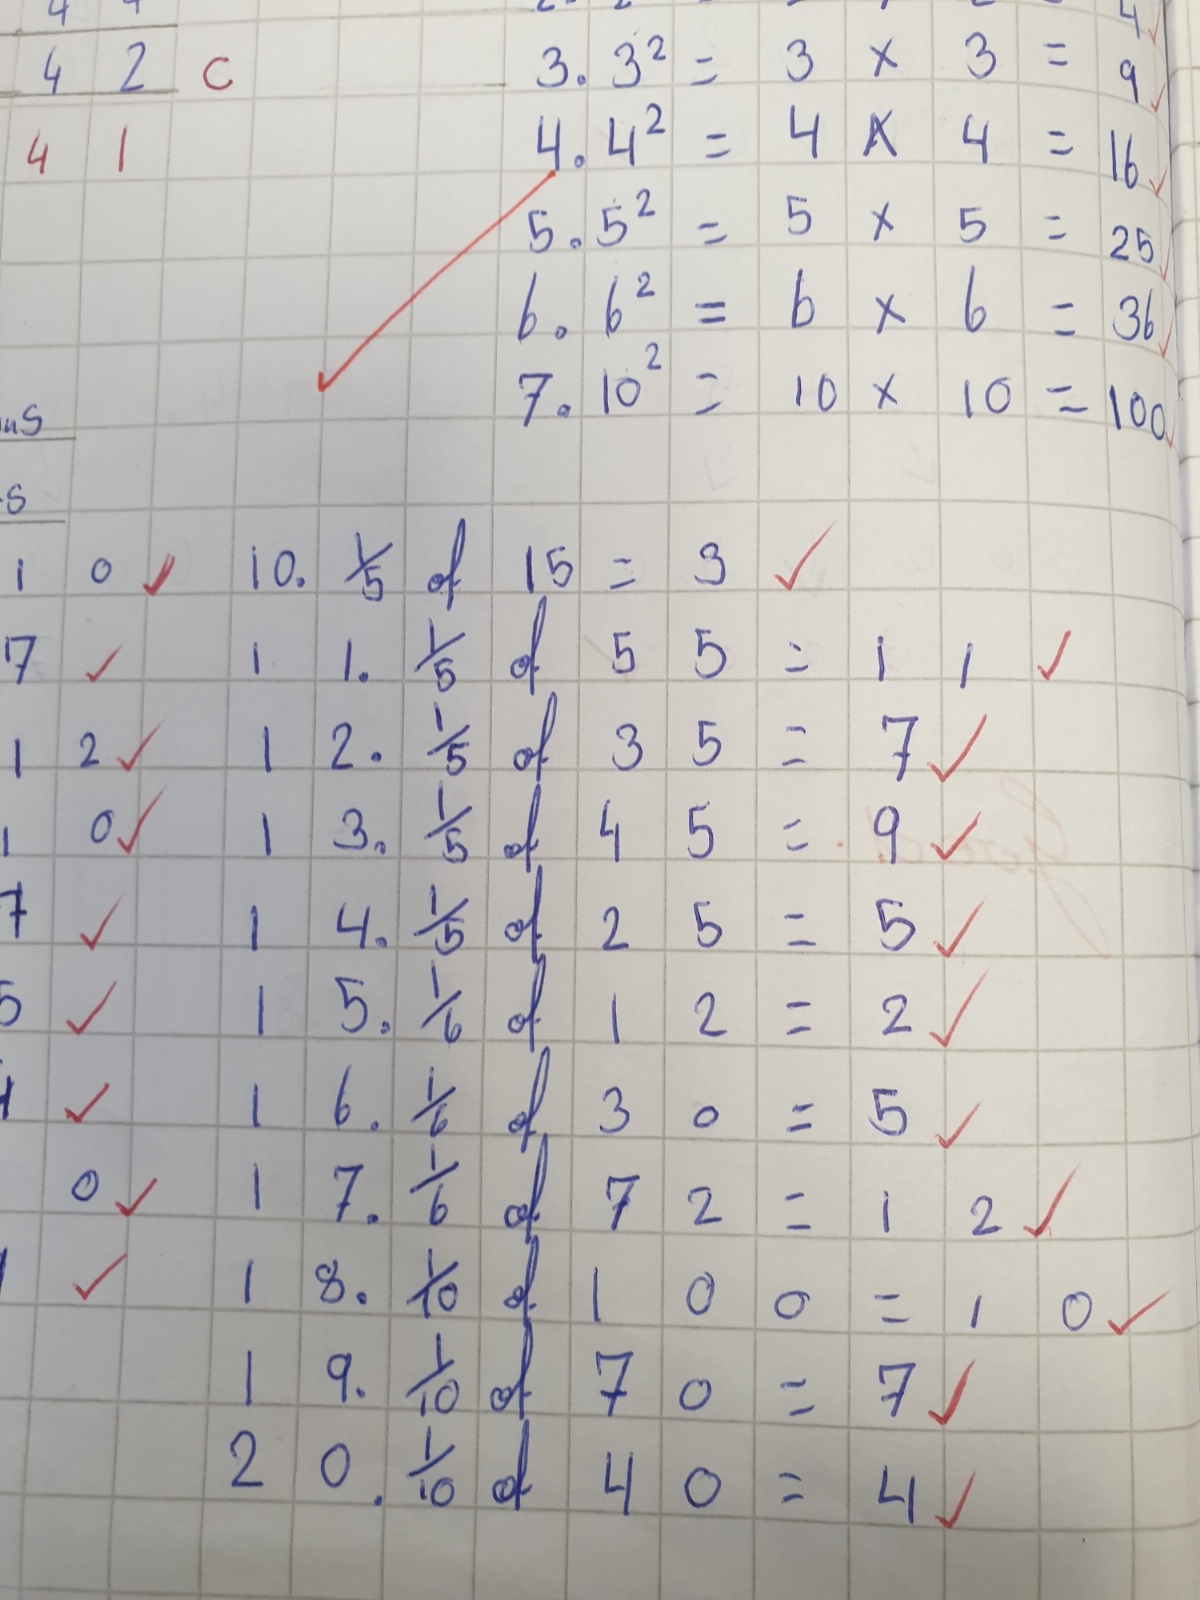 4 2 C
4 1
3. 3² = 3 × 3 = 9
4. 4² = 4 × 4 = 16
5. 5² = 5 × 5 = 25
6. 6² = 6 × 6 = 36
7. 10² = 10 × 10 = 100
1 0
7
1 2
1 0
7
5
0
10. 1/5 of 15 = 3
11. 1/5 of 55 = 11
12. 1/5 of 35 = 7
13. 1/5 of 45 = 9
14. 1/5 of 25 = 5
15. 1/6 of 12 = 2
16. 1/6 of 30 = 5
17. 1/6 of 72 = 12
18. 1/10 of 100 = 10
19. 1/10 of 70 = 7
20. 1/10 of 40 = 4